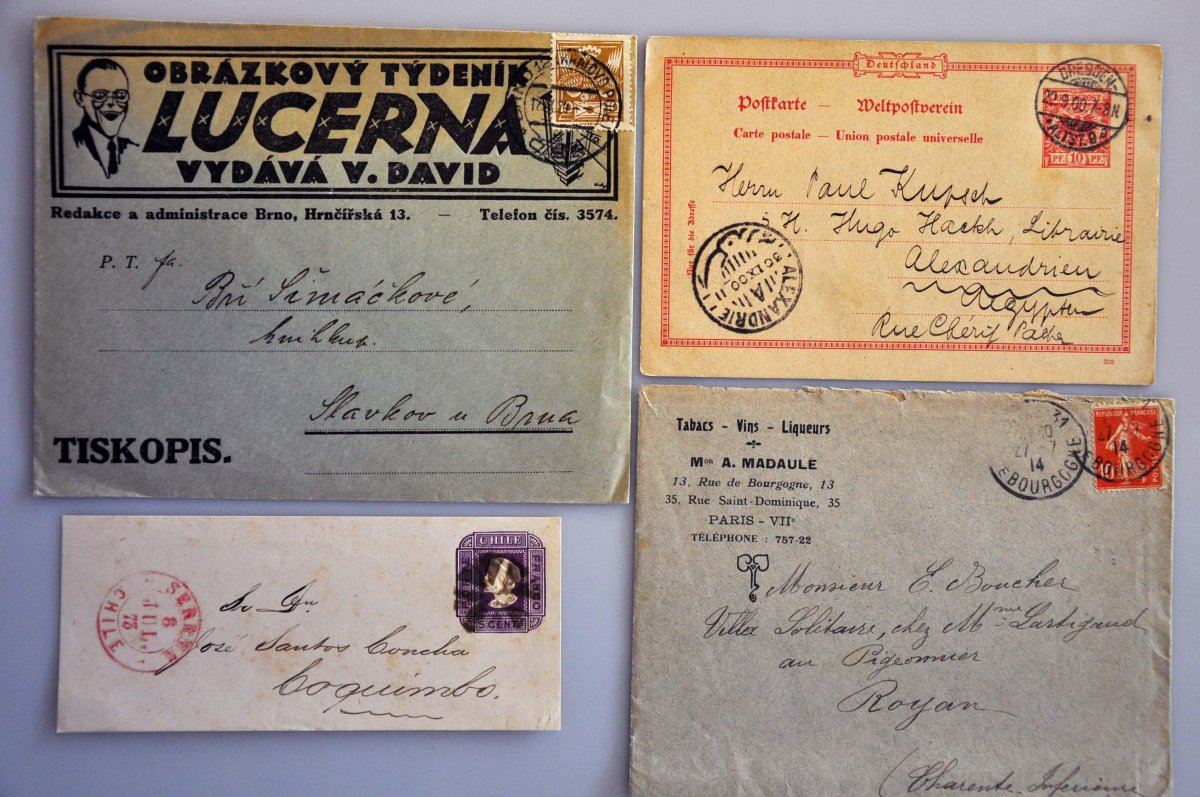 OBRÁZKOVÝ TÝDENÍK
LUCERNA
VYDÁVÁ V. DAVID
Redakce a administrace Brno, Hrnčířská 13. — Telefon čís. 3574.
P. T. fa.
Bří Šimáčkové,
knihkup.
Slavkov u Brna
TISKOPIS.
Deutschland
Postkarte – Weltpostverein
Carte postale – Union postale universelle
DRESDEN-
22.9.00.7-8N
10 PF.
Nur für die Adresse
Herrn Paul Kupsch
H. Hugo Hackh, Librairie
Alexandrien
Ägypten
Rue Chérif Pacha
ALEXANDRIE
30 IX 00
299
CHILE
PORTE FRANCO
5 CENTS
SERENA
8
JUL
72
CHILE
José Santos Concha
Coquimbo.
Tabacs - Vins - Liqueurs
Mon A. MADAULE
13, Rue de Bourgogne, 13
35, Rue Saint-Dominique, 35
PARIS - VIIe
TÉLÉPHONE : 757-22
REPUBLIQUE FRANÇAISE
27 - 7
14
BOURGOGNE
Monsieur E. Boucher
Villa Solitaire, chez Mme Lartigaud
au Pigeonnier
Royan
(Charente Inférieure